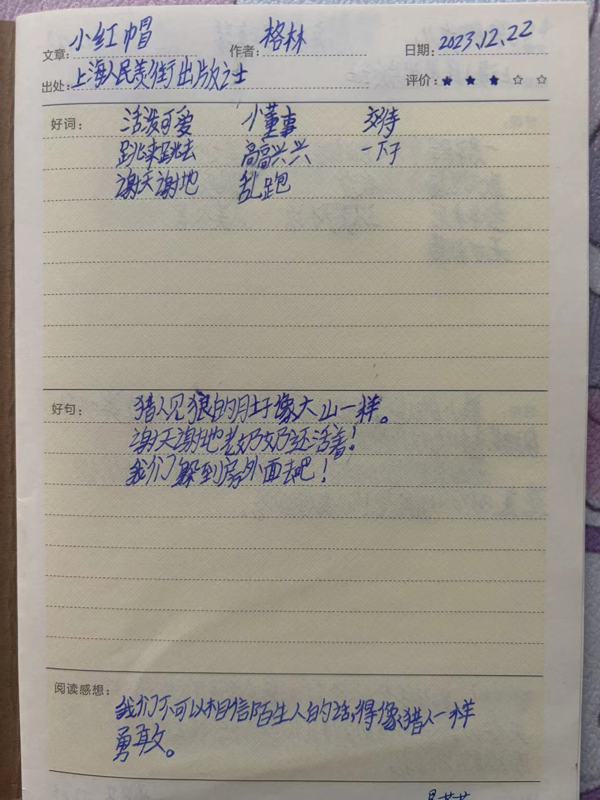 文章: 小红帽 作者: 格林 日期: 2023.12.22
出处: 上海人民美术出版社 评价: ★ ★ ★ ☆ ☆
好词: 活泼可爱 小董事 交待
跳来跳去 高高兴兴 一下子
谢天谢地 乱跑
好句: 猎人见狼的肚子像大山一样。
谢天谢地老奶奶还活着!
我们躲到房外面去吧!
阅读感想: 我们不可以相信陌生人的话,得像猎人一样
勇敢。